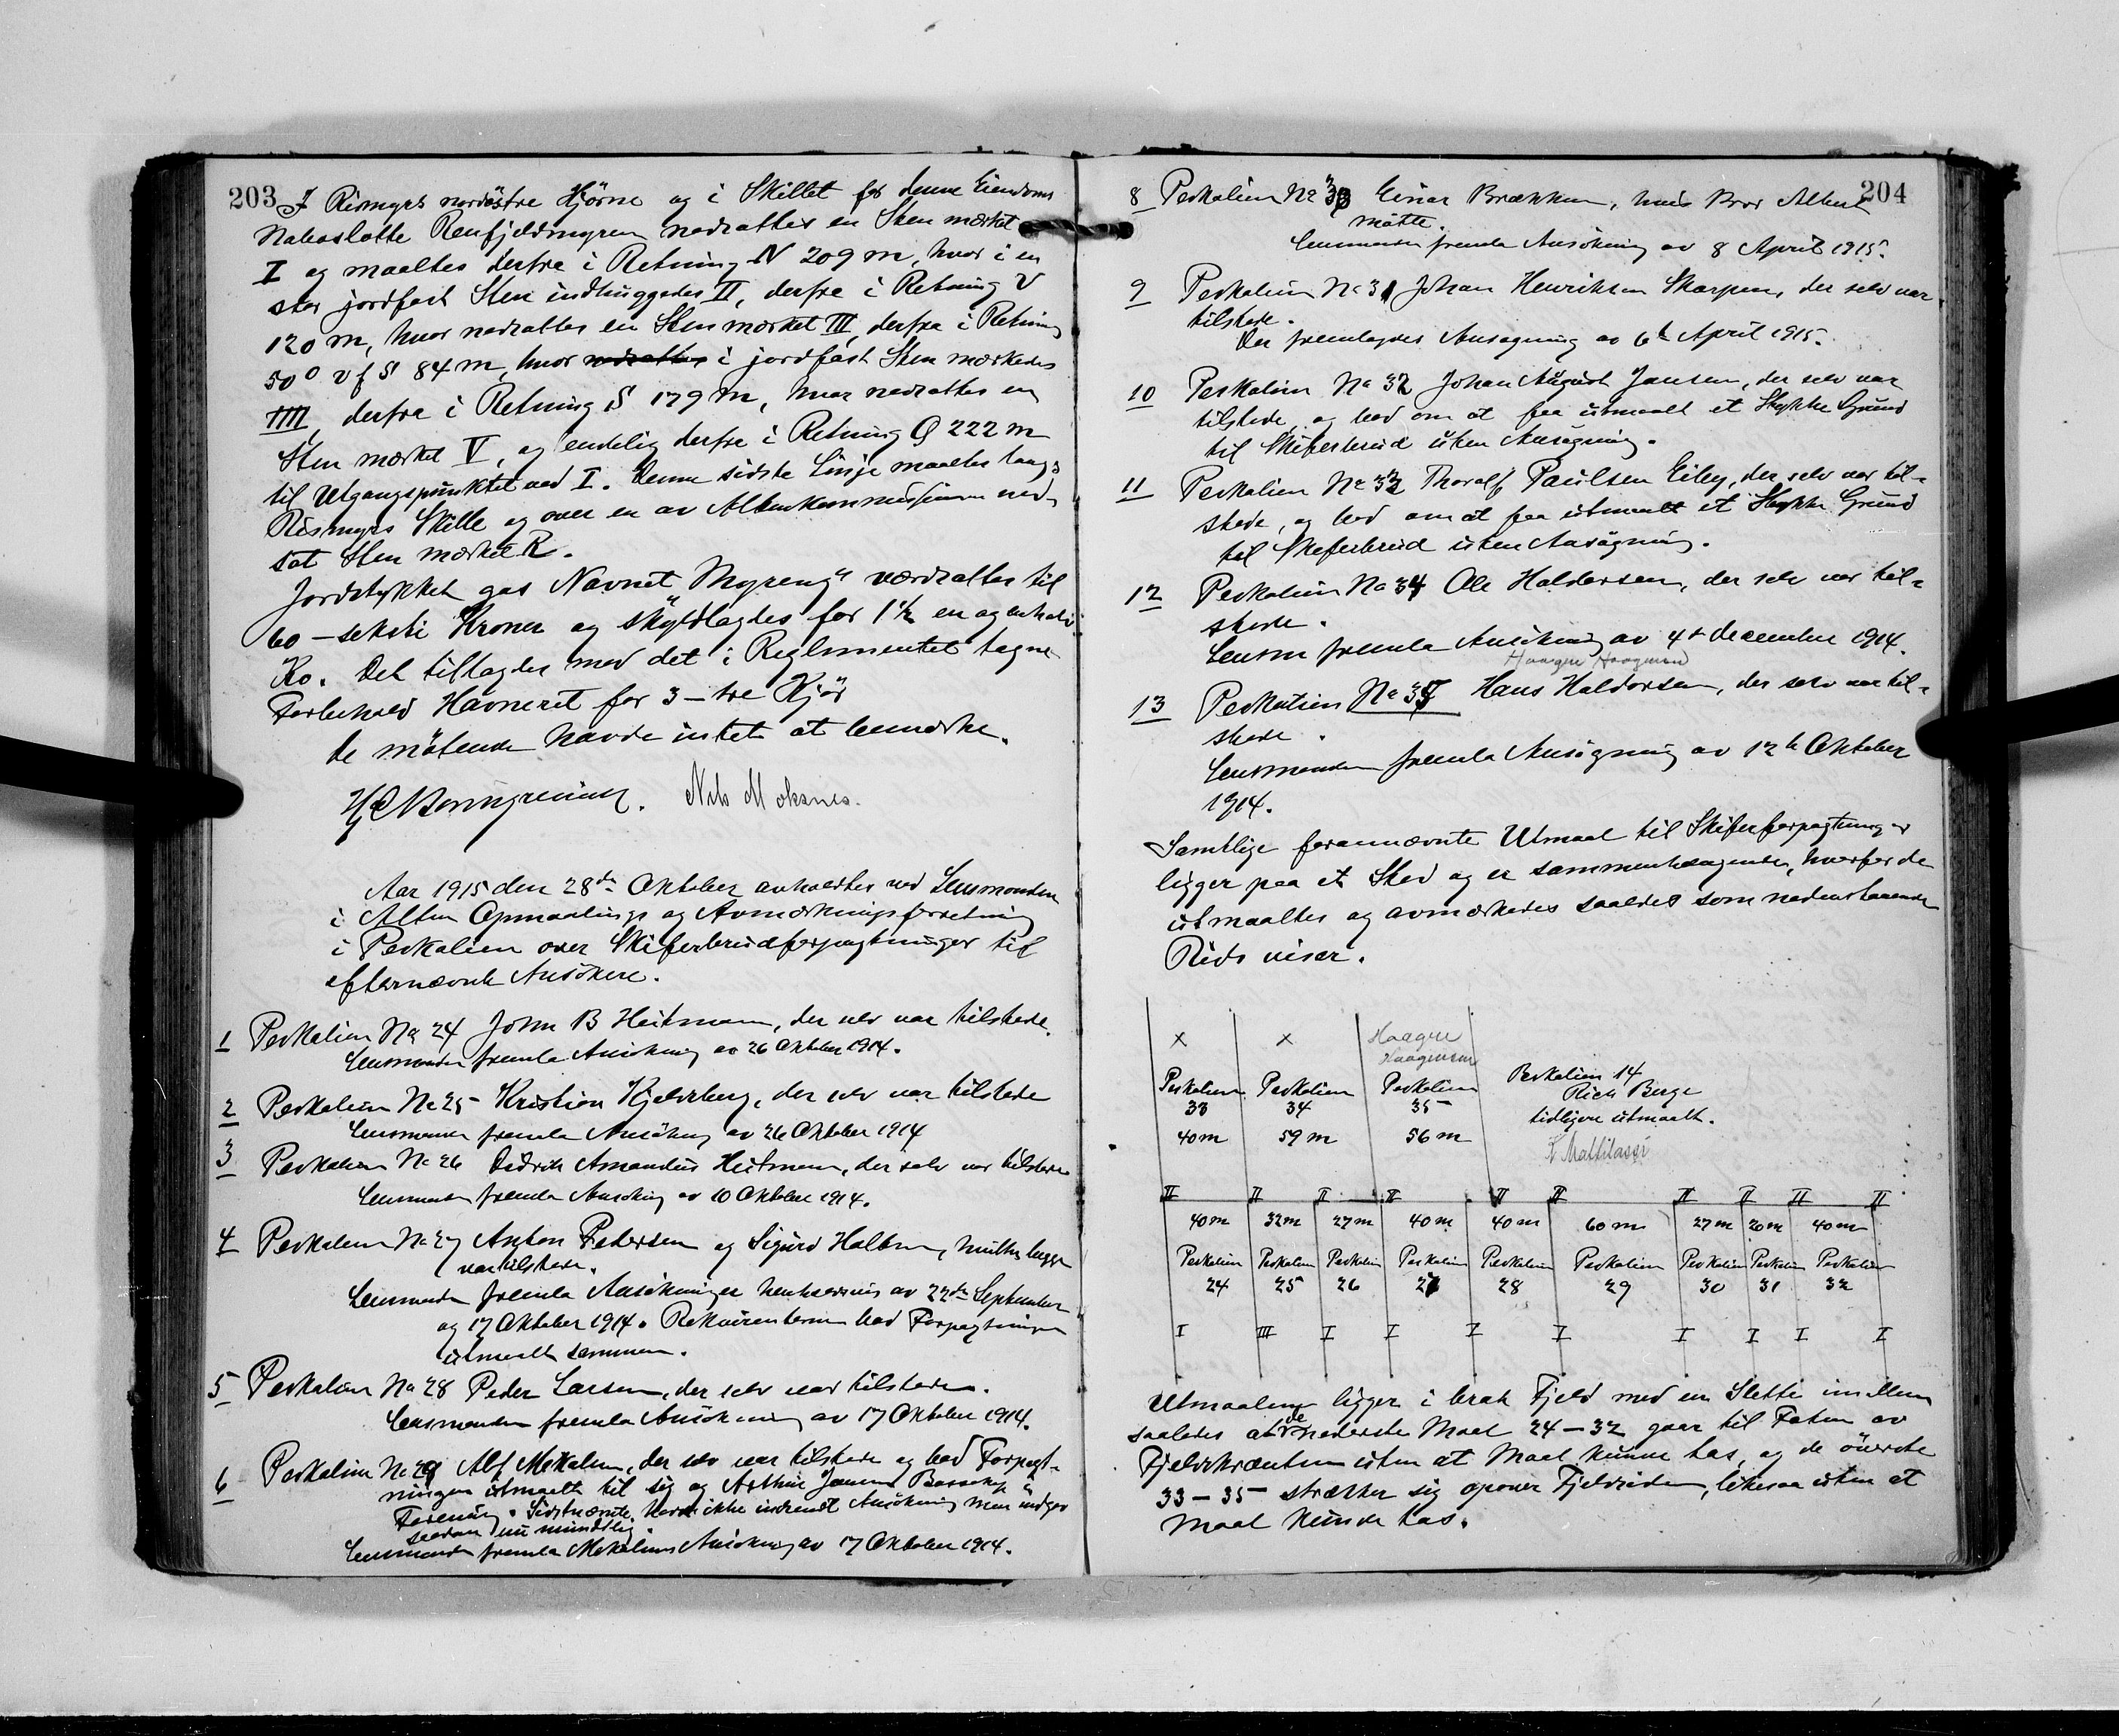 203
I Rismyrs nordöstre Hjörne og i Skillet for denne Eiendoms
Naboslotte Renfjeldmyren nedsattes en Sten mærket
I og maaltes derfra i Retning N 209 m, hvor i en
stor jordfast Sten indhuggedes II, derfra i Retning V
120 m, hvor nedsattes en Sten mærket III, derfra i Retning
50° V f S 84 m, hvor nedsattes i jordfast Sten mærkedes
IIII, derfra i Retning S 179 m, hvor nedsattes en
Sten mærket V, og endelig derfra i Retning Ø 222 m
til Utgangspunktet ved I. Denne sidste Linje maaltes langs
Rismyrs Skille og over en av Altenkommissionen ned-
sat Sten mærket R.
Jordstykket gas Navnet "Myreng" værdsattes til
60 – seksti Kroner og skyldlagdes for 1½ en og enhalv
Ko. Det tillagdes med det i Reglementet tagne
Forbehold Havneret for 3 – tre Kjör
De mötende havde intet at bemærke.
Nils Moksnes.
Aar 1915 den 28de Oktober avholdtes ved Lensmanden
i Alten Opmaalings og Avmerkningsforretning
i Peskalien over Skiferbrudforpagtninger til
efternævnte Ansökere.
1 Peskalien No 24 John B Heitmann, der selv var tilstede.
Lensmanden fremla Ansökning av 26 Oktober 1914.
2 Peskalien No 25 Kristian Kjeldsberg, der selv var tilstede
Lensmanden fremla Ansökning av 26 Oktober 1914
3 Peskalien No 26 Didrik Amandus Heitmann, der selv var tilstede
Lensmanden fremla Ansökning av 10 Oktober 1914.
4 Peskalien No 27 Anton Pedersen og Sigurd Holten, hvilke begge
var tilstede.
Lensmanden fremla Ansökninger henholdsvis av 22de September
og 17 Oktober 1914. Rekvirenterne bad Forpagtningen
utmaalt sammen.
5 Peskalien No 28 Peder Larsen, der selv var tilstede.
Lensmanden fremla Ansökning av 17 Oktober 1914.
6 Peskalien No 29 Alf Mikalsen, der selv var tilstede og bad Forpagt-
ningen utmaalt til sig og Arthur Jensen Bossekop i
Forening. Sidstnævnte havde ikke indsendt Ansökning men indgav
saadan nu mundtlig.
Lensmanden fremla Mikalsens Ansökning av 17 Oktober 1914.
204
8 Peskalien No 30 Einar Brækken, hvis Bror Albert
mötte.
Lensmanden fremla Ansökning av 8 April 1915.
9 Peskalien No 31 Johan Henriksen Skarpnes, der selv var
tilstede.
Der fremlagdes Ansøgning av 6te April 1915.
10 Peskalien No 32 Johan August Jansen, der selv var
tilstede, og bad om at faa utmaalt et Stykke Grund
til Skiferbrud uten Ansøgning.
11 Peskalien No 33 Thoralf Paulsen Eiby, der selv var til-
stede, og bad om at faa utmaalt et Stykke Grund
til Skiferbrud uten Ansøgning.
12 Peskalien No 34 Ole Haldorsen, der selv var til-
stede.
Lensm fremla Ansökning av 4de December 1914.
Haagen Haagensen
13 Peskalien No 35 Hans Haldorsen, der selv var til-
stede.
Lensmanden fremla Ansøgning av 12te Oktober
1914.
Samtlige forannævnte Utmaal til Skiferforpagtninger
ligger paa et Sted og er sammenhængende, hvorfor de
utmaaltes og avmærkedes saaledes som nedenstaaende
Rids viser.
x x Haagen
Haagensen
Peskalien Peskalien Peskalien Peskalien 14
33 34 35 Rich Berge
40 m 59 m 56 m tidligere utmaalt.
Mattilassi
II II II II II II II II II II
40 m 32 m 27 m 40 m 40 m 60 m 27 m 20 m 40 m
Peskalien Peskalien Peskalien Peskalien Peskalien Peskalien Peskalien Peskalien Peskalien
24 25 26 27 28 29 30 31 32
I III I I I I I I I I
Utmaalene ligger i brat Fjeld med en Slette imellem
saaledes at de nederste Maal 24 – 32 gaar til Foten av
Fjeldskrænten uten at Maal kunne tas, og de överste
33 – 35 strækker sig opover Fjeldsiden, likesaa uten at
Maal kunde tas.